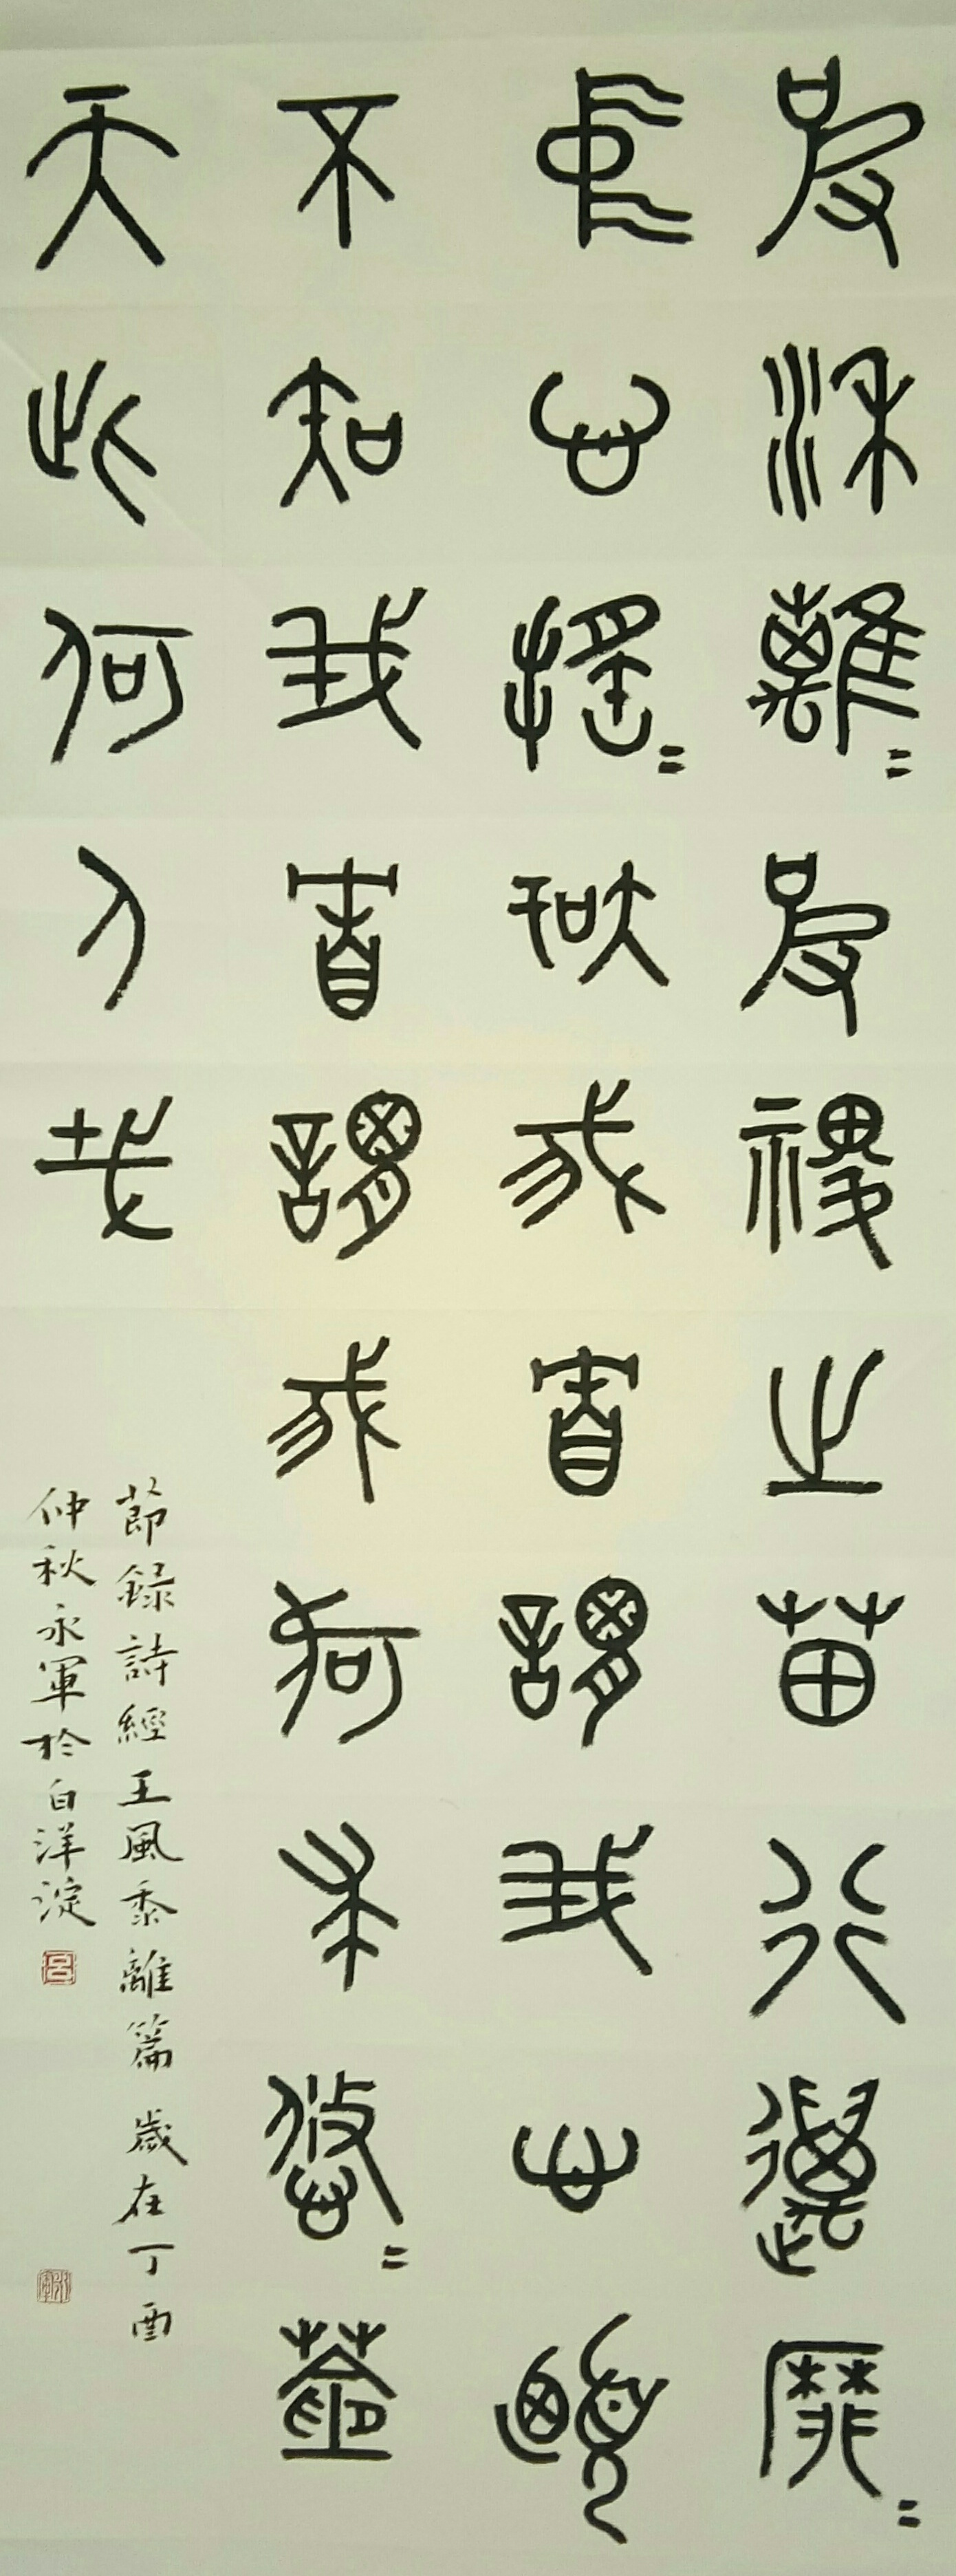 彼黍離=彼稷之苗行邁靡=
中心搖=知我者謂我心憂
不知我者謂我何求悠=蒼
天此何人哉
節錄詩經王風黍離篇 歲在丁酉
仲秋永軍於白洋淀
呂